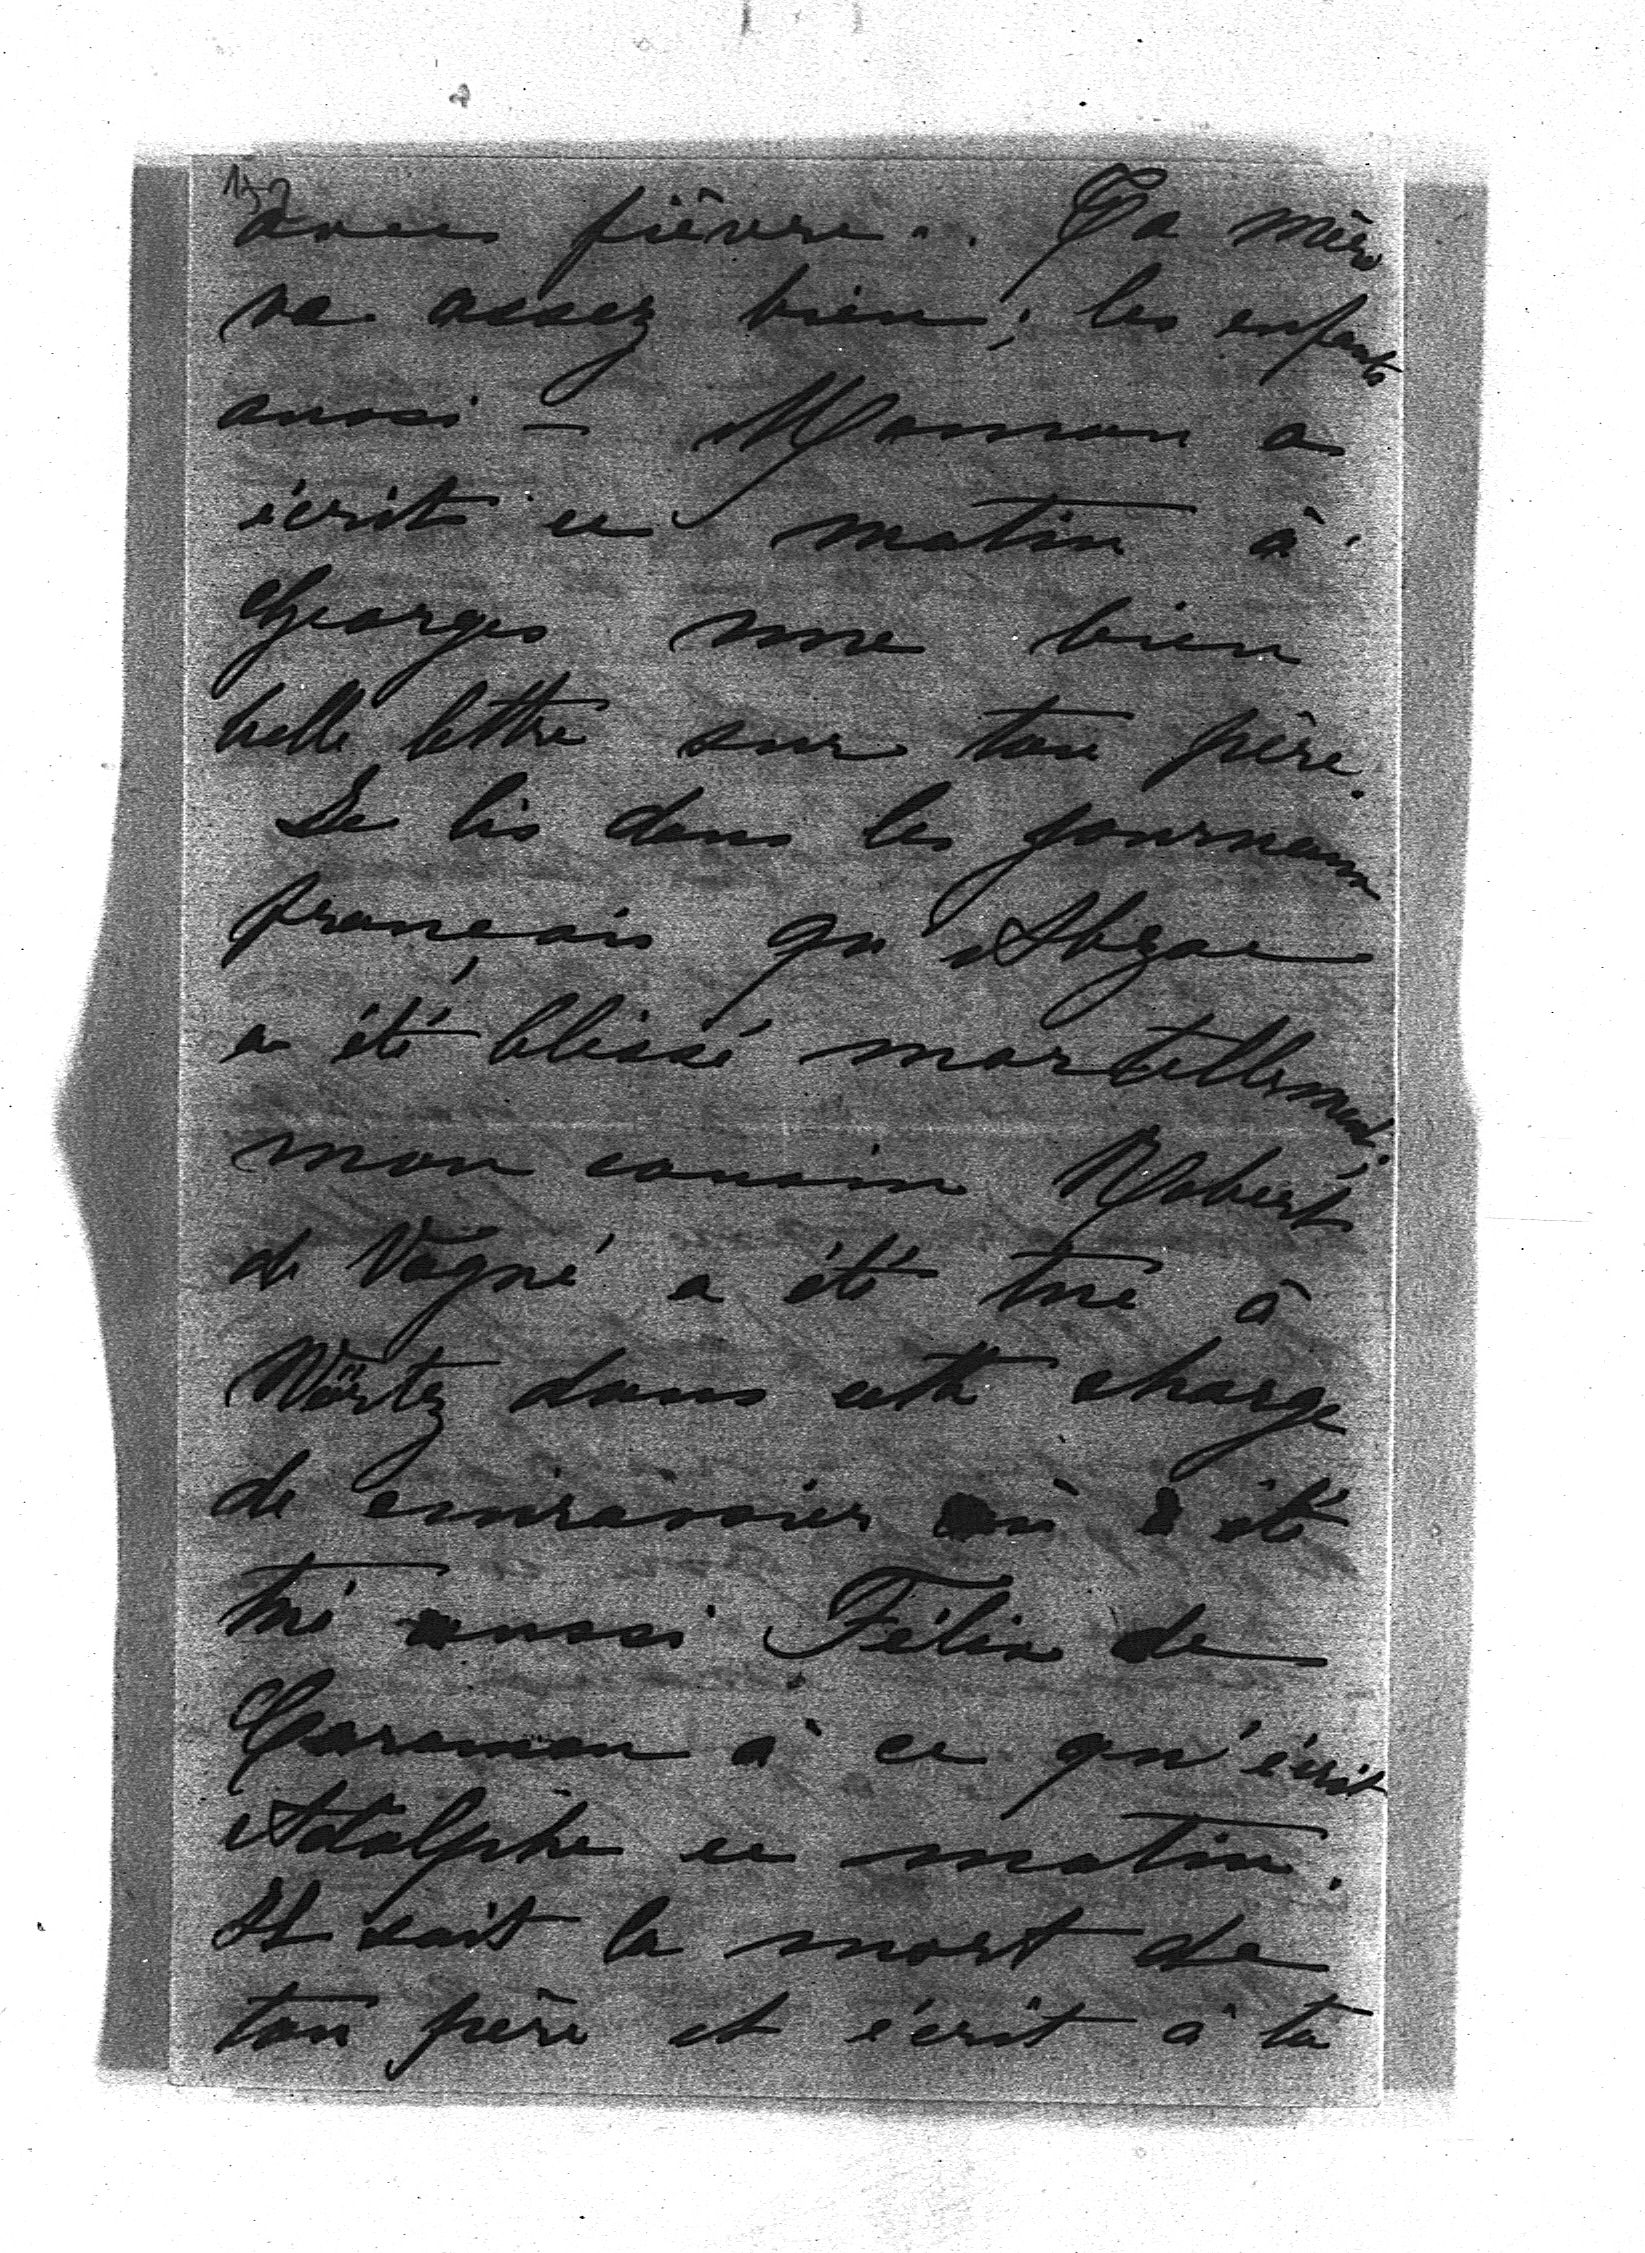 avec fièvre.. Ta mère
va assez bien; les enfants
aussi – Maman a
écrit ce matin à
Georges une bien
belle lettre sur ton père.
Je lis dans les journaux
français qu'Abzac
a été blessé mortellement;
mon cousin Robert
de Vogué a été tué à
Wörtz dans cette charge
de cuirassiers où a été
tué aussi Félix de
Caraman à ce qu'écrit
Adolphe ce matin.
Il sait la mort de
ton père et écrit à ta